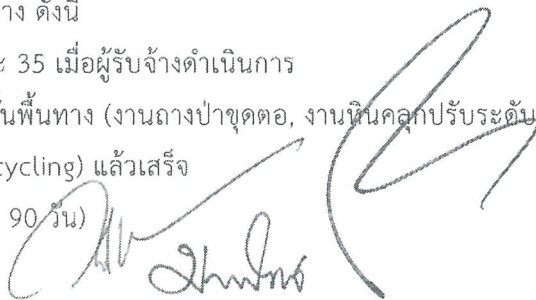 าง ดังนี้
ะ 35 เมื่อผู้รับจ้างดำเนินการ
ั้นพื้นทาง (งานถางป่าขุดตอ, งานหินคลุกปรับระดับ
cycling) แล้วเสร็จ
90 วัน)